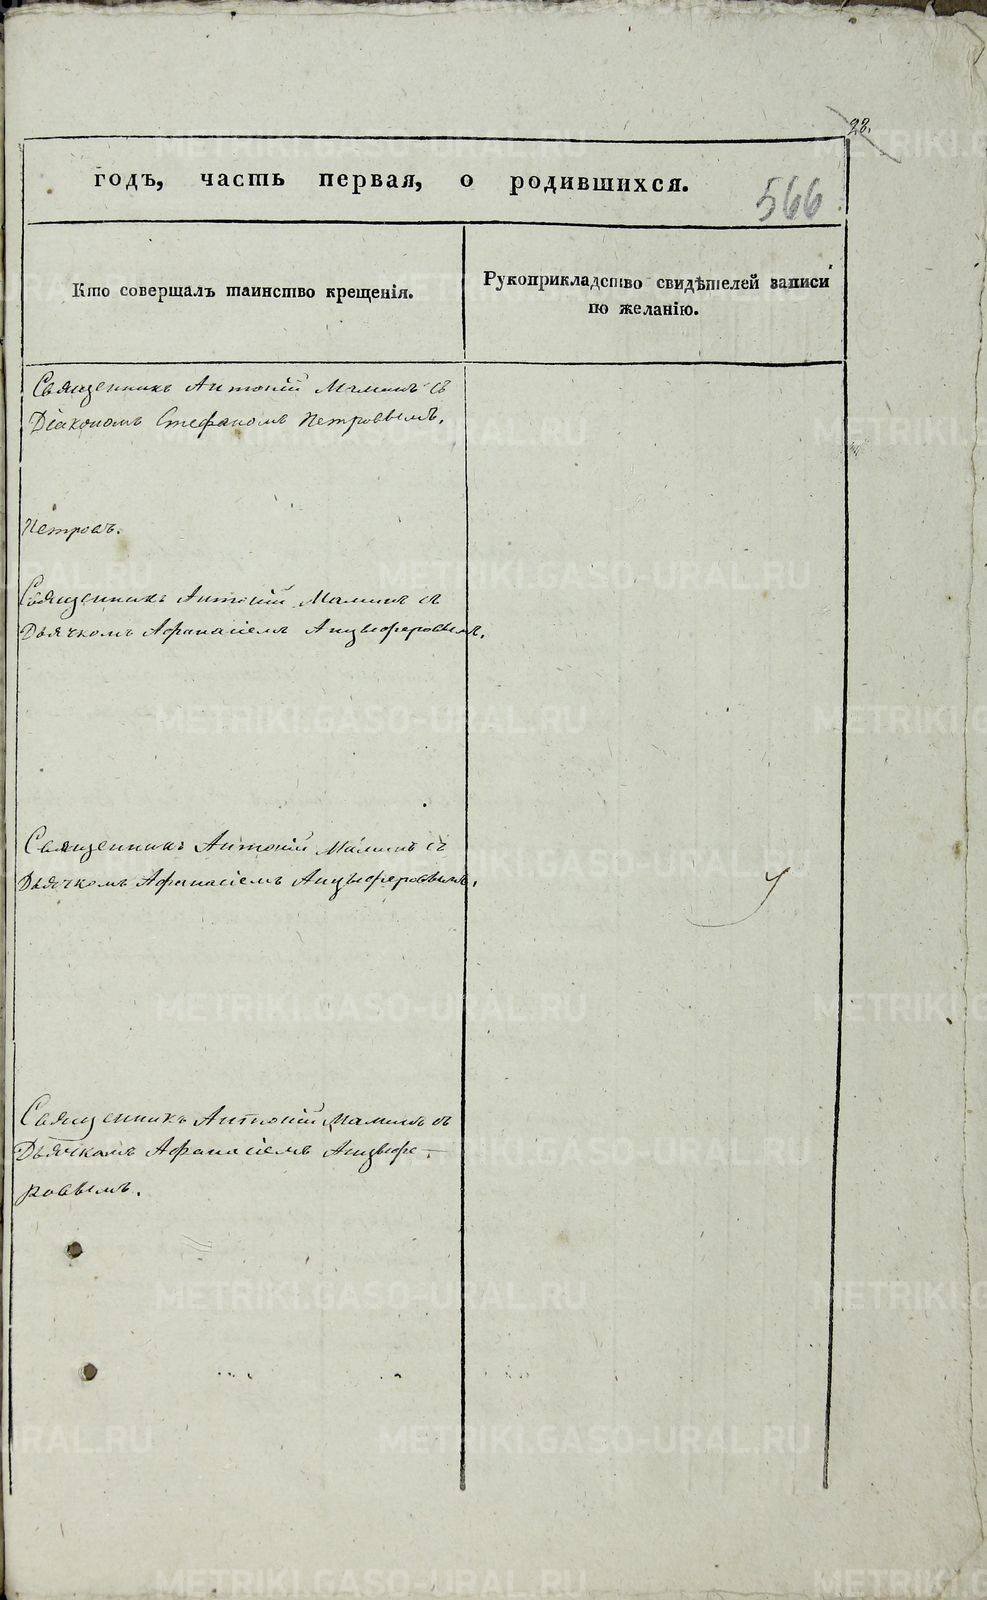 28.
годъ, часть первая, о родившихся.
566
Кто совершалъ таинство крещенія.
Рукоприкладство свидѣтелей записи
по желанію.
Священникъ Антоній Маминъ съ
Діакономъ Стефаномъ Петровымъ.
Петровъ.
Священникъ Антоній Маминъ съ
Дьячкомъ Афанасіемъ Анцыферовымъ.
Священникъ Антоній Маминъ съ
Дьячкомъ Афанасіемъ Анцыферовымъ.
Священникъ Антоній Маминъ съ
Дьячкомъ Афанасіемъ Анцыфе-
ровымъ.
METRIKI.GASO-URAL.RU